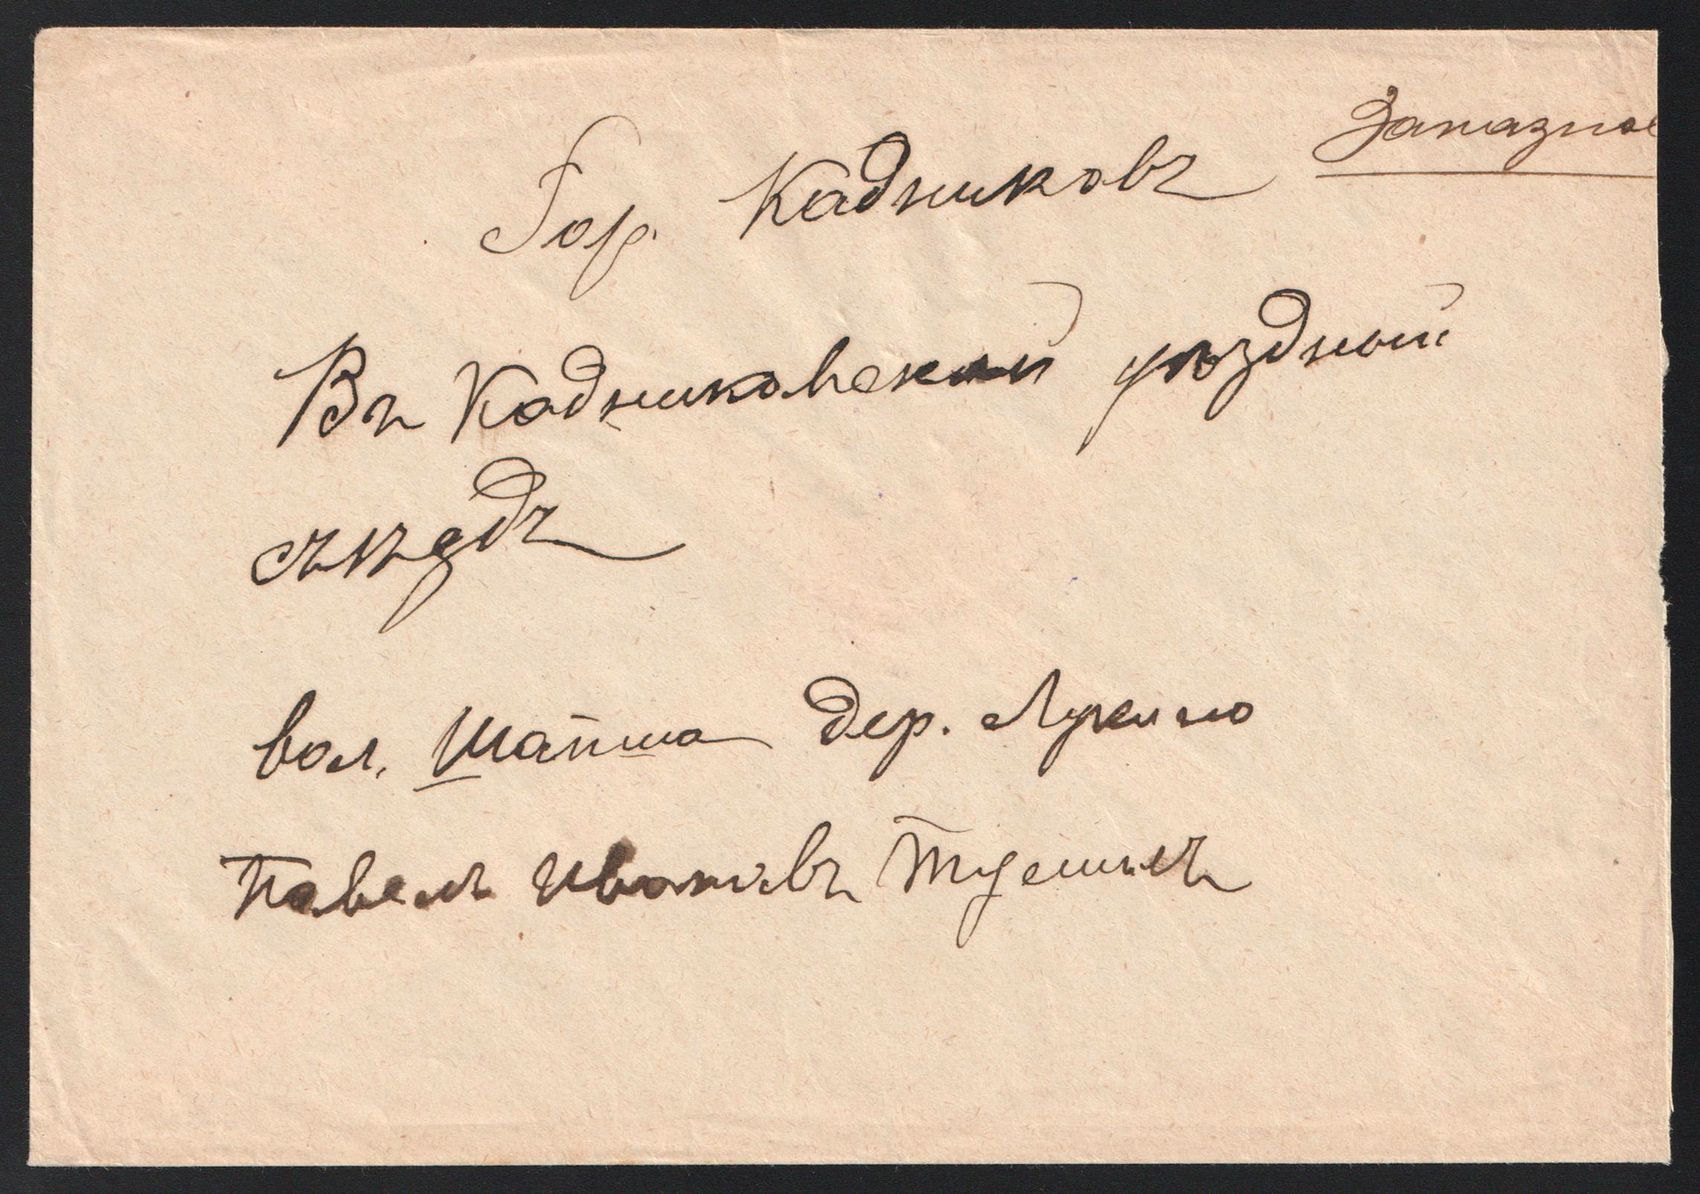 Заказное
Гор. Кадниковъ
Въ Кадниковскій уѣздный
съѣздъ
вол. Шапша дер. Лукино
Павелъ Ивановъ